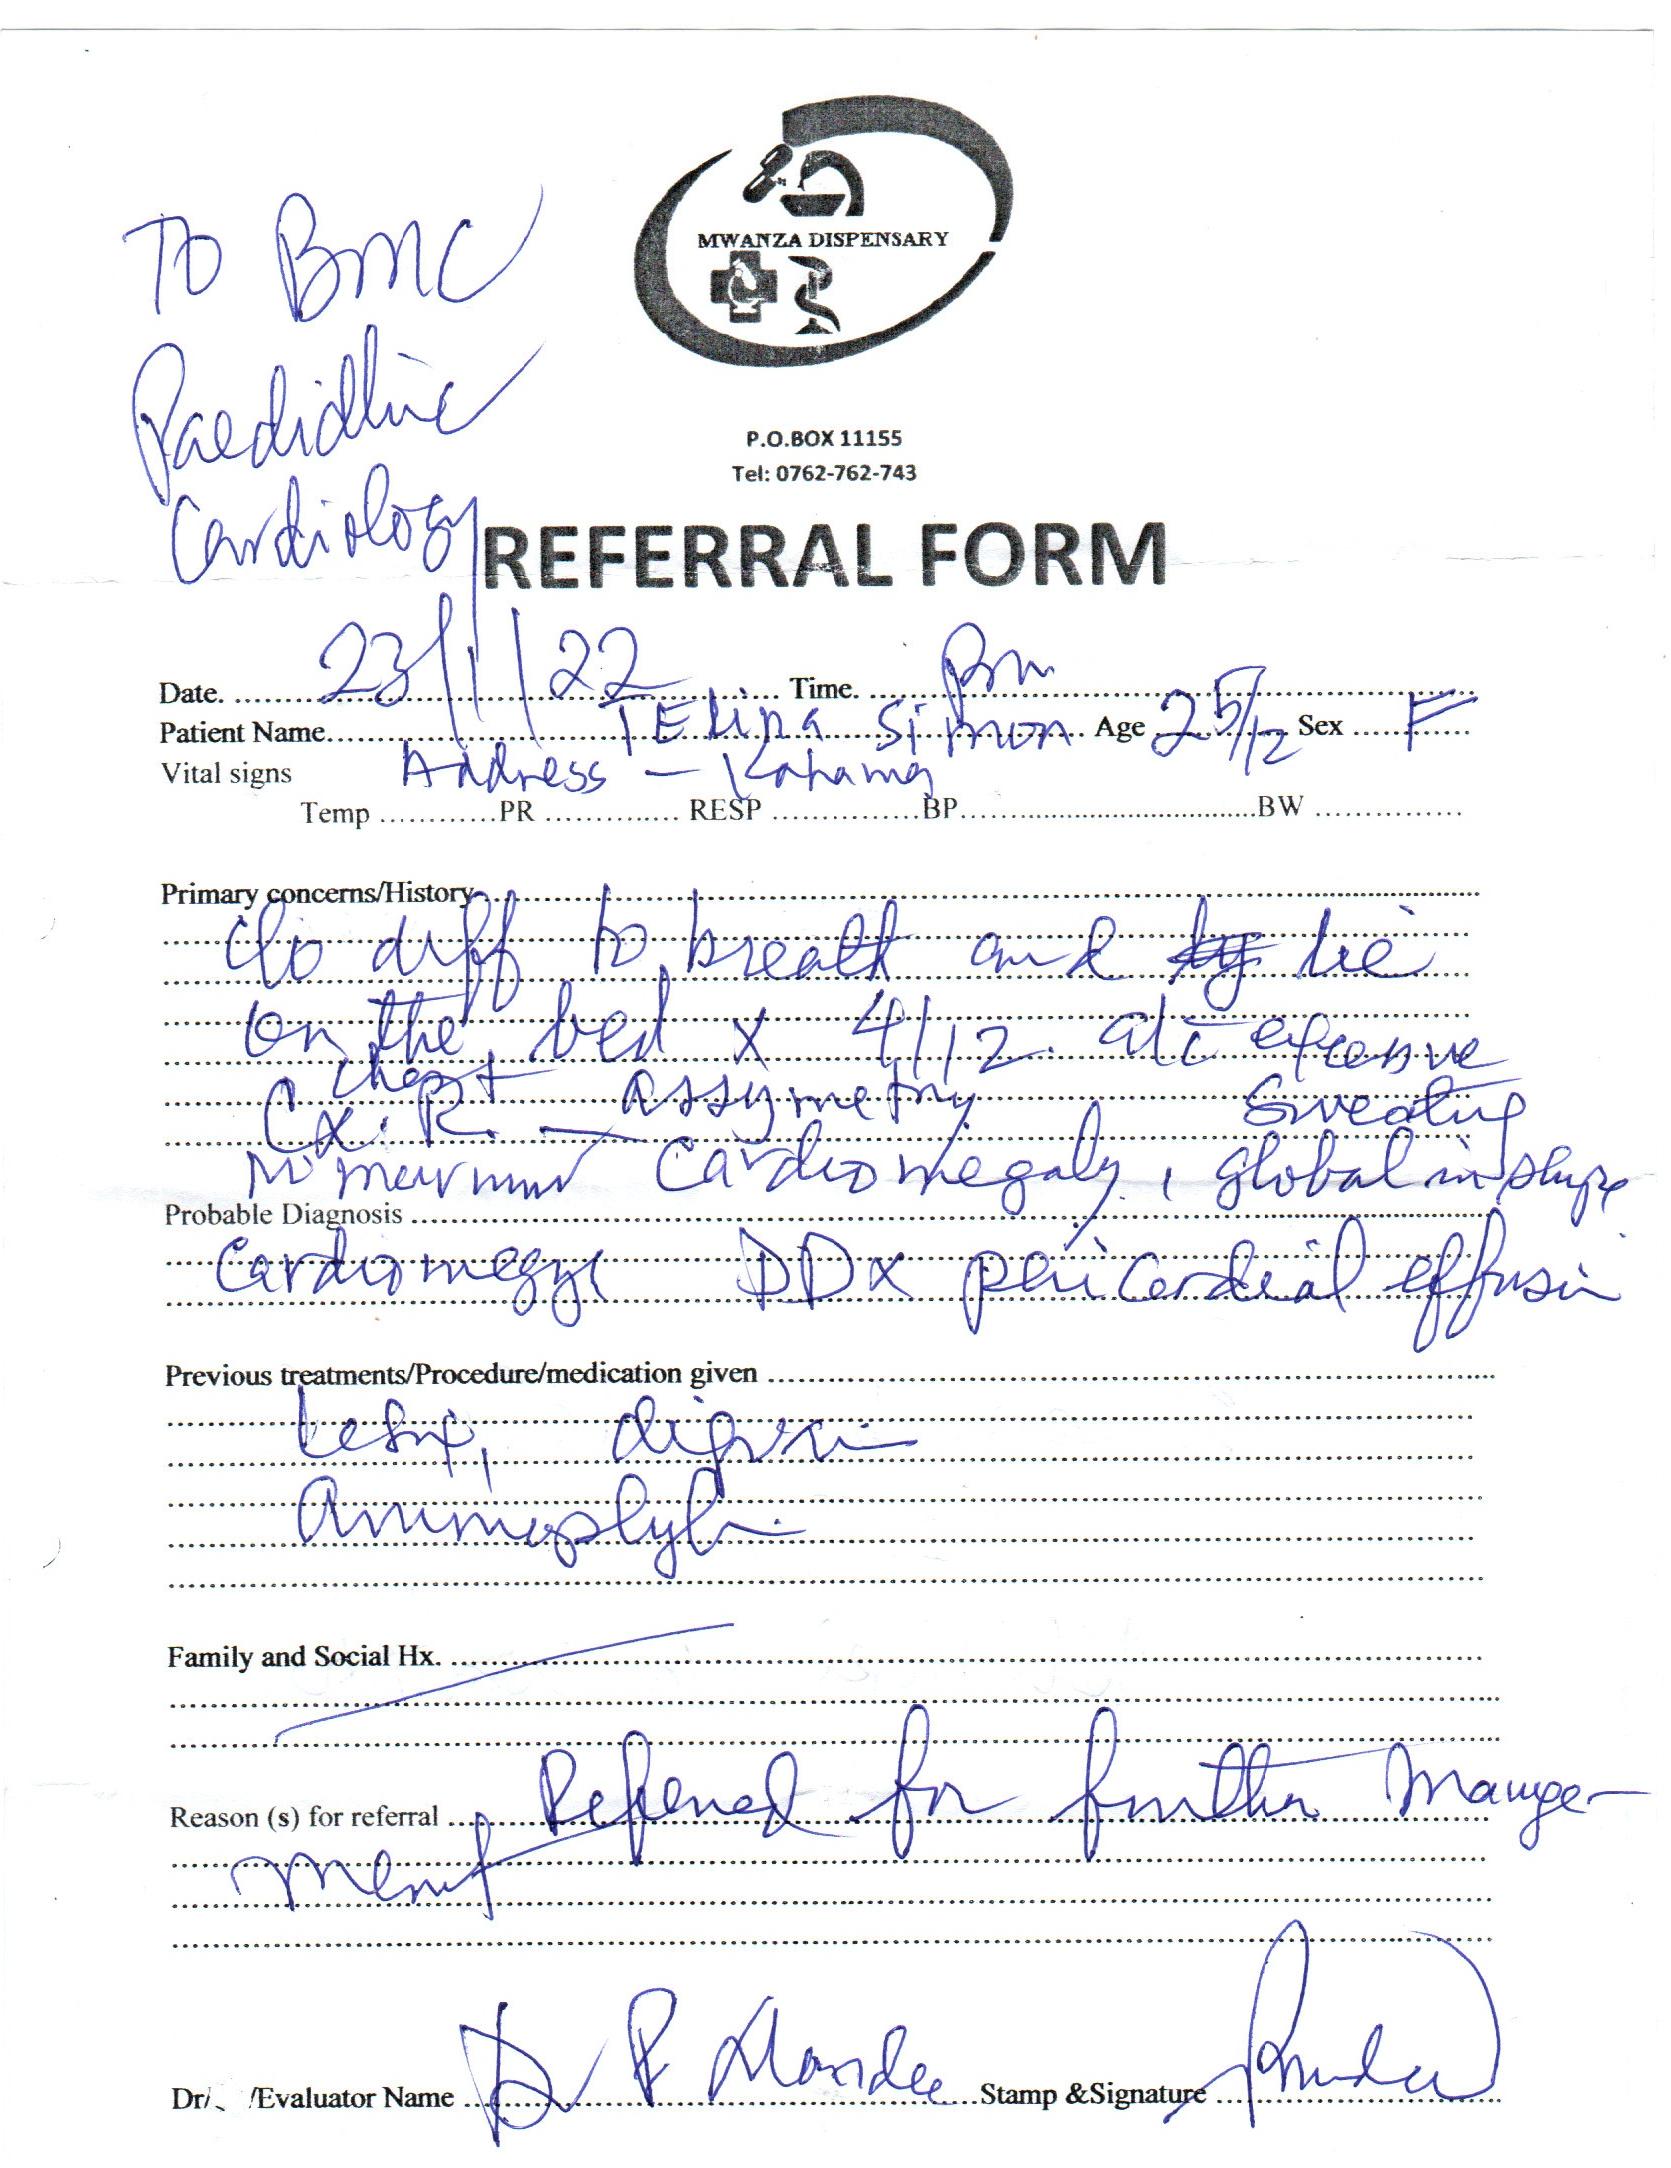 To BMC
Paediatric
Cardiology
MWANZA DISPENSARY
P.O.BOX 11155
Tel: 0762-762-743
REFERRAL FORM
Date. 23/1/22 Time. Pm
Patient Name. TELINA Simon Age 2 5/12 Sex F
Vital signs Address - Kahama
Temp PR RESP BP BW
Primary concerns/History
C/o diff to breath and lie
on the bed x 4/12.
chest
Cx.R. - assymetry sweating
murmur Cardiomegaly, global in shape
Probable Diagnosis
DDx pericardial effusion
Previous treatments/Procedure/medication given
Lasix, digoxin
Aminophylin
Family and Social Hx.
Reason (s) for referral Referred for further Manage-
ment
Dr/ /Evaluator Name Dr P Stamp &Signature